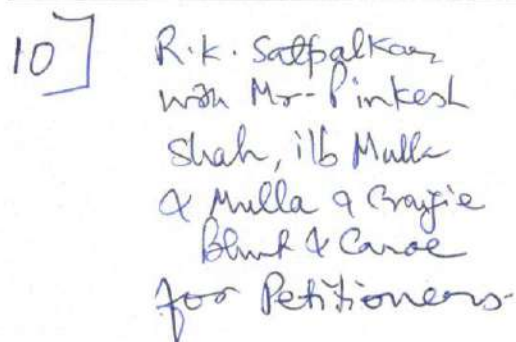 10] R.K. Satpalkar
with Mr. Pinkesh
Shah, i/b Mulla
& Mulla & Craigie
Blunt & Caroe
for Petitioners.